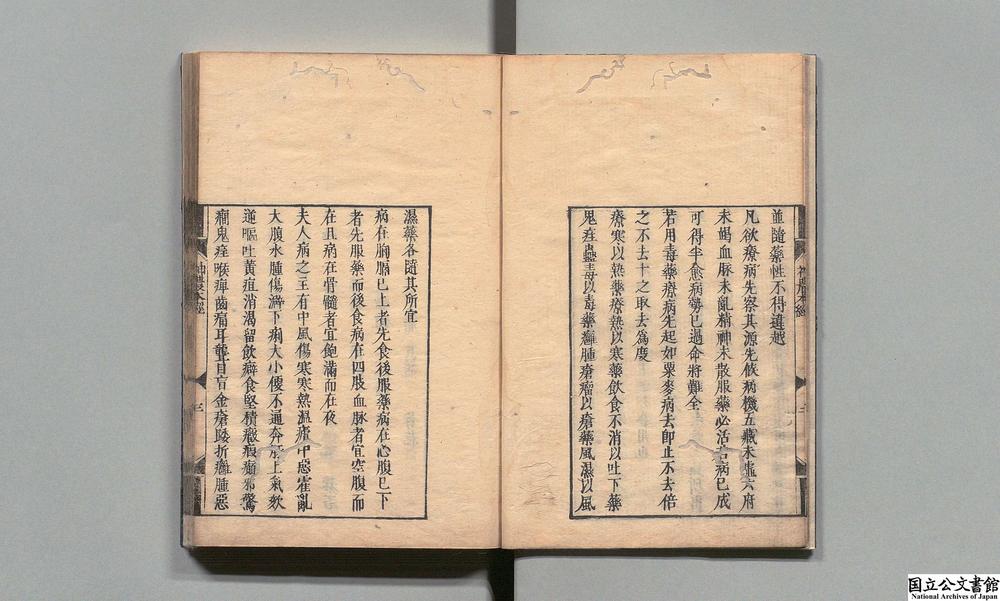 並隨藥性不得違越
凡欲療病先察其源先候病機五藏未虛六府
未竭血脉未亂精神未散服藥必活若病已成
可得半愈病勢已過命將難全
若用毒藥療病先起如粟麥病去即止不去倍
之不去十之取去爲度
療寒以熱藥療熱以寒藥飲食不消以吐下藥
鬼疰蠱毒以毒藥癰腫瘡瘤以瘡藥風濕以風
神農本經
三
濕藥各隨其所宜
病在胸膈已上者先食後服藥病在心腹已下
者先服藥而後食病在四肢血脉者宜空腹而
在旦病在骨髓者宜飽滿而在夜
夫人病之主有中風傷寒寒熱溫瘧中惡霍亂
大腹水腫傷澼下痢大小便不通奔豚上氣欬
逆嘔吐黃疸消渴留飲癖食堅積癥瘕癲邪驚
癎鬼疰喉痺齒痛耳聾目盲金瘡踒折癰腫惡
国立公文書館
National Archives of Japan